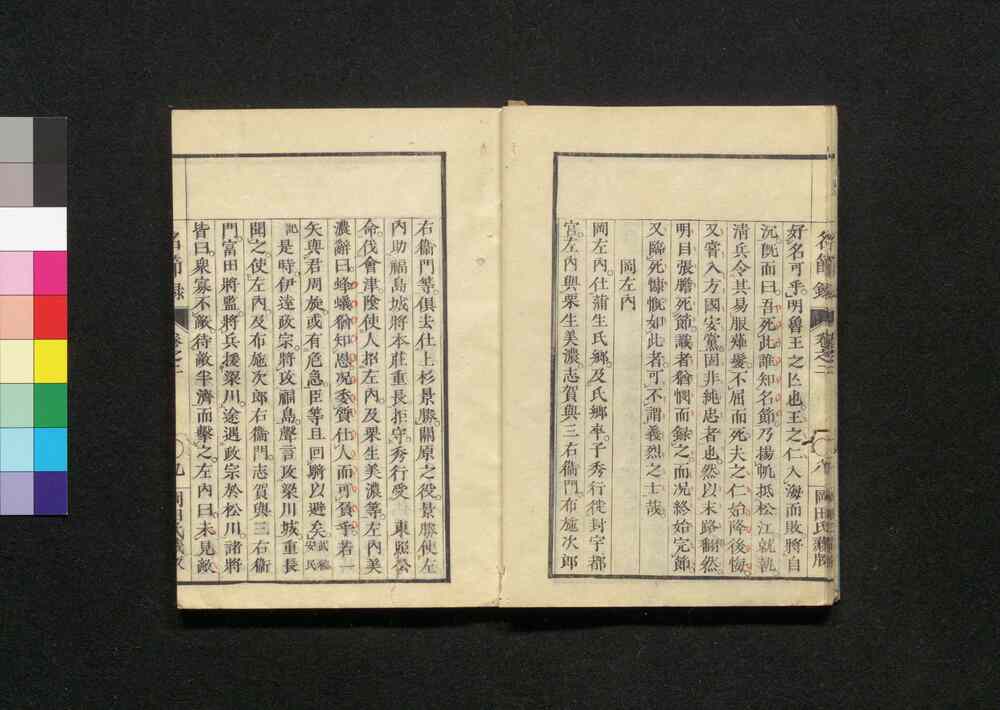 名節錄
卷之二
八
岡田氏藏版
好名可乎。明魯王之亡也。王之仁入海而敗將自
沉。旣而曰。吾死此誰知名節。乃揚帆抵松江就執。
淸兵令其易服薙髮。不屈而死。夫之仁始降後悔。
又嘗入方國安黨。固非純忠者也。然以末路翻然
明目張膽死節。識者猶憫而錄之。而況終始完節
又降死慷慨如此者。可不謂義烈之士哉
岡左內
岡左內。仕蒲生氏鄉。及氏鄉卒。子秀行徙封宇都
宮。左內與栗生美濃。志賀與三右衞門。布施次郎
右衞門等。俱去仕上杉景勝。關原之役。景勝使左
內助福島城將本莊重長拒守。秀行受 東照公
命伐會津。陰使人招左內及栗生美濃等。左內美
濃辭曰。蜂蟻猶知恩。況委質仕人而可貳乎。若一
矢與君周旋。或有危急。臣等且回騎以避矣。
記是時。伊達政宗將攻福島。聲言攻梁川城。重長
聞之。使左內及布施次郎右衞門。志賀與三右衞
門。富田將監。將兵援梁川。途遇政宗於松川。諸將
皆曰。衆寡不敵。待敵半濟而擊之。左內曰。未見敵
名節錄
卷之二
九